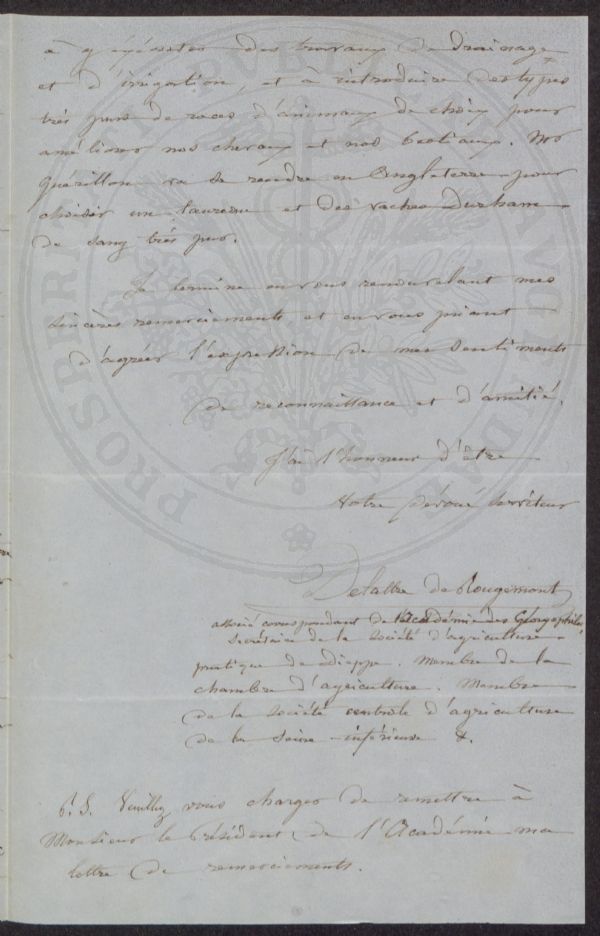 à y exécuter des travaux de drainage
et d'irrigation, et à introduire des types
très purs de races d'animaux de choix pour
améliorer nos chevaux et nos bestiaux. Mr
Quérillon va se rendre en Angleterre pour
choisir un taureau et des vaches Durham
de sang très pur.
Je termine en vous renouvelant mes
sincères remerciements et en vous priant
d'agréer l'expression de mes sentiments
de reconnaissance et d'amitié.
J'ai l'honneur d'être
Votre dévoué serviteur
Delattre de Rougemont
associé correspondant de l'académie des Géorgophiles
Secrétaire de la Société d'agriculture
pratique de Dieppe. Membre de la
chambre d'agriculture. Membre
de la Société centrale d'agriculture
de la Seine-inférieure &.
P. S. Veuillez vous charger de remettre à
Monsieur le Président de l'Académie ma
lettre de remerciements.
PROSPERITATI PUBLICAE